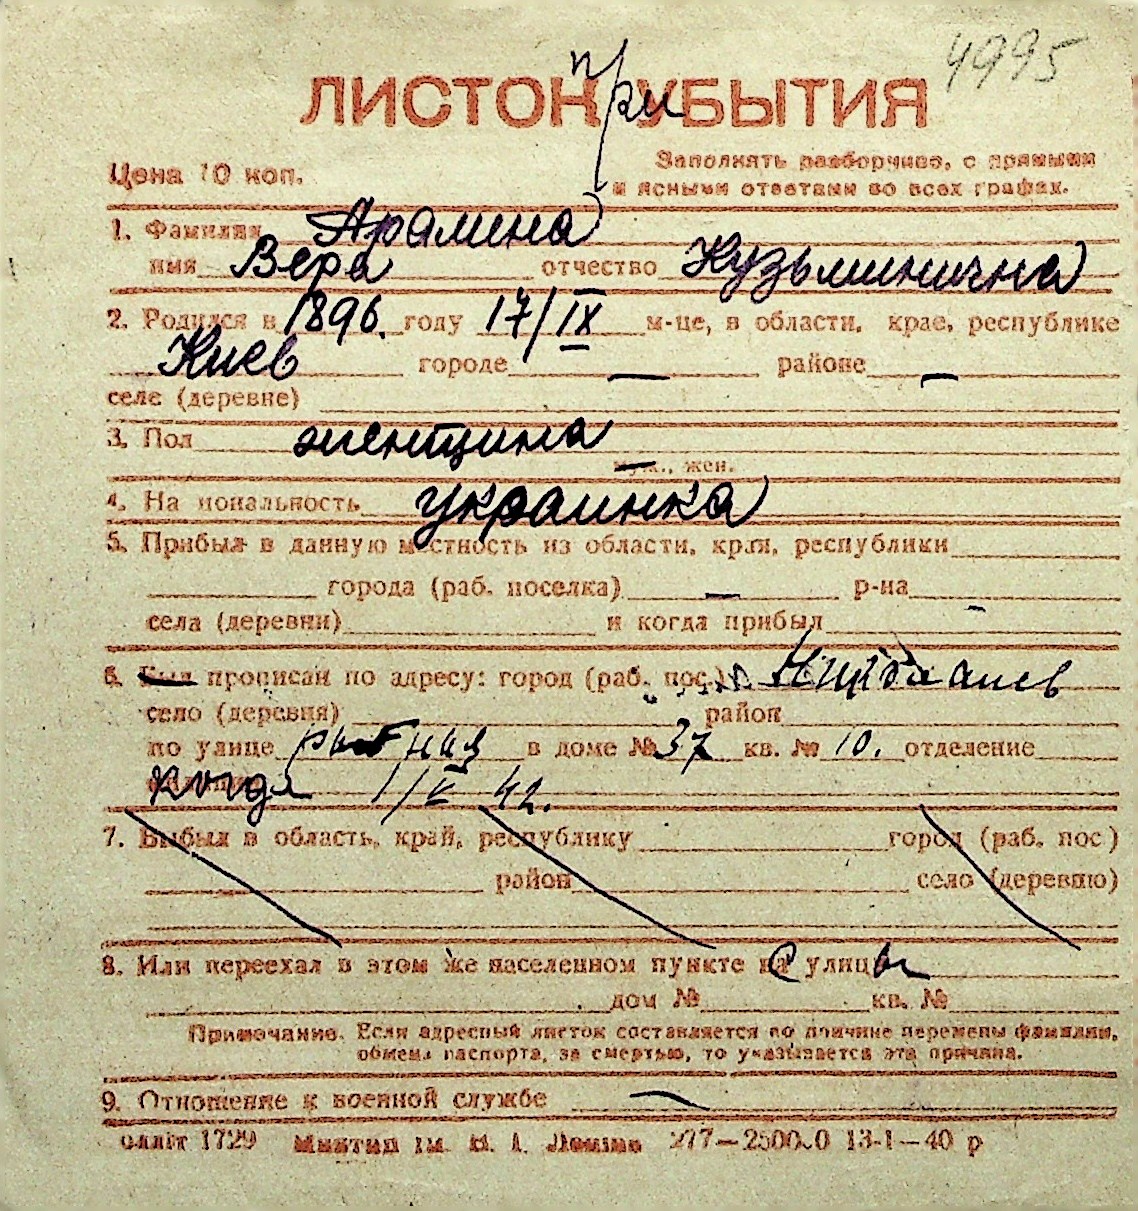 4995
при
ЛИСТОК УБЫТИЯ
Цена 10 коп.
Заполнять разборчиво, с прямыми
и ясными ответами во всех графах.
1. Фамилия Арамина
имя Вера отчество Кузьминична
2. Родился в 1896 году 17/IX м-це, в области, крае, республике
Киев городе — районе —
селе (деревне)
3. Пол женщина
муж., жен.
4. Национальность украинка
5. Прибыл в данную местность из области, края, республики
города (раб. поселка) — р-на —
села (деревни) и когда прибыл
6. Был прописан по адресу: город (раб. пос.)
село (деревня) район
по улице рыбная в доме № 37 кв. № 10. отделение
когда 1/V 42.
7. Выбыл в область, край, республику город (раб. пос)
район село (деревню)
8. Или переехал в этом же населенном пункте с улицы
дом № кв. №
Примечание. Если адресный листок составляется по причине перемены фамилии,
обмена паспорта, за смертью, то указывается эта причина.
9. Отношение к военной службе —
олліт 1729 277—2500.0 13-1—40 р